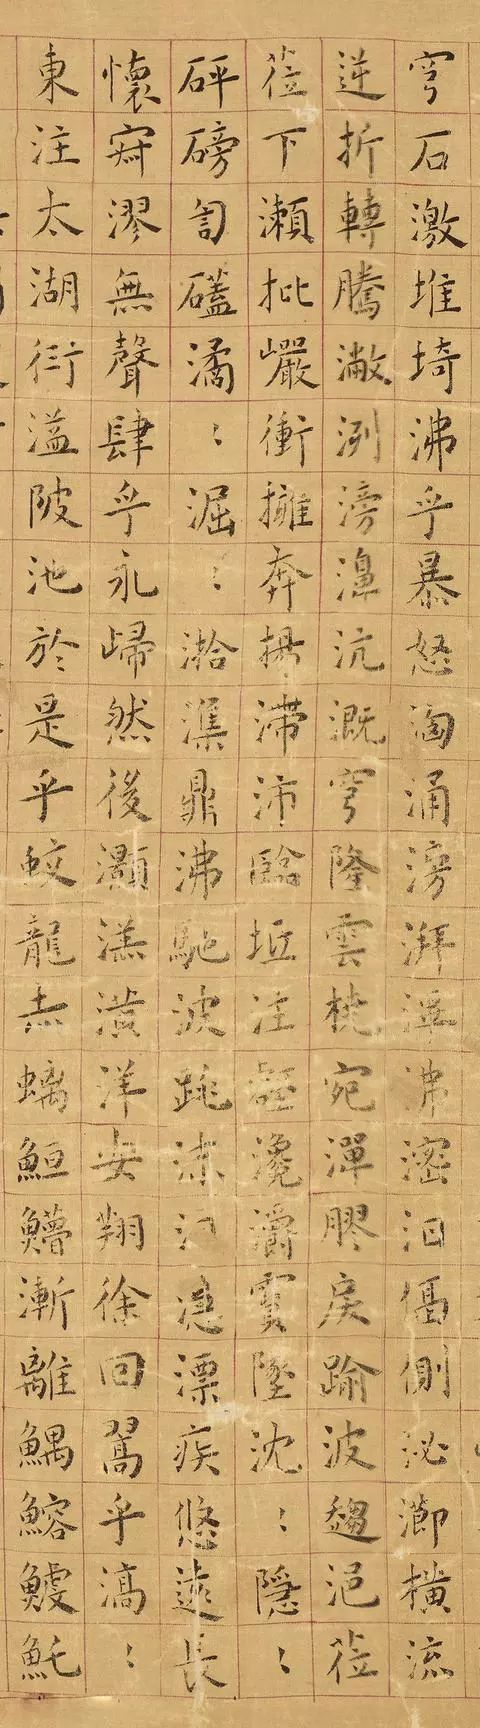 穹石激堆埼沸乎暴怒洶涌滂湃滭沸滵汩偪側泌瀄橫流
逆折轉騰潎洌滂濞沆溉穹隆雲橈宛潬膠戾踰波趨浥莅
莅下瀨批巖衝擁奔揚滯沛臨坻注壑瀺灂霣墜沈：隱：
砰磅訇礚潏：淈：湁潗鼎沸馳波跳沫汩㴔漂疾悠遠長
懷寂漻無聲肆乎永歸然後灝溔潢洋安翔徐回翯乎滈：
東注太湖衍溢陂池於是乎蛟龍赤螭䱎䲛漸離鰅鰫鰬魠